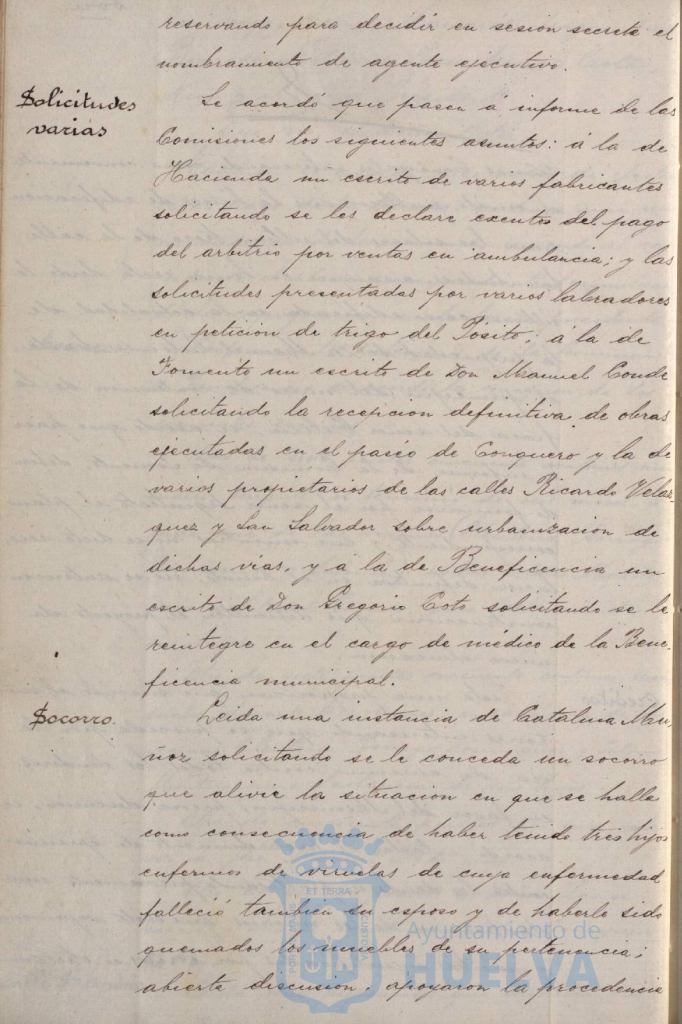 reservando para decidir en sesión secreta el
nombramiento de agente ejecutivo.
Solicitudes
varias
Se acordó que pasen á informe de las
Comisiones los siguientes asuntos: á la de
Hacienda un escrito de varios fabricantes
solicitando se les declare exentos del pago
del arbitrio por ventas en ambulancia; y las
solicitudes presentadas por varios labradores
en peticion de trigo del Pósito; á la de
Fomento un escrito de Don Manuel Conde
solicitando la recepcion definitiva de obras
ejecutadas en el paseo de Conquero y la de
varios propietarios de las calles Ricardo Velaz
quez y San Salvador sobre urbanizacion de
dichas vias, y á la de Beneficencia un
escrito de Don Gregorio Coto solicitando se le
reintegre en el cargo de médico de la Bene-
ficencia municipal.
Socorro.
Leida una instancia de Catalina Mu-
ñoz solicitando se le conceda un socorro
que alivie la situacion en que se halla
como consecuencia de haber tenido tres hijos
enfermos de viruelas de cuya enfermedad
falleció tambien su esposo y de haberle sido
quemados los muebles de su pertenencia;
abierta discusion, apoyaron la procedencia
ET TERRA
Ayuntamiento de
HUELVA